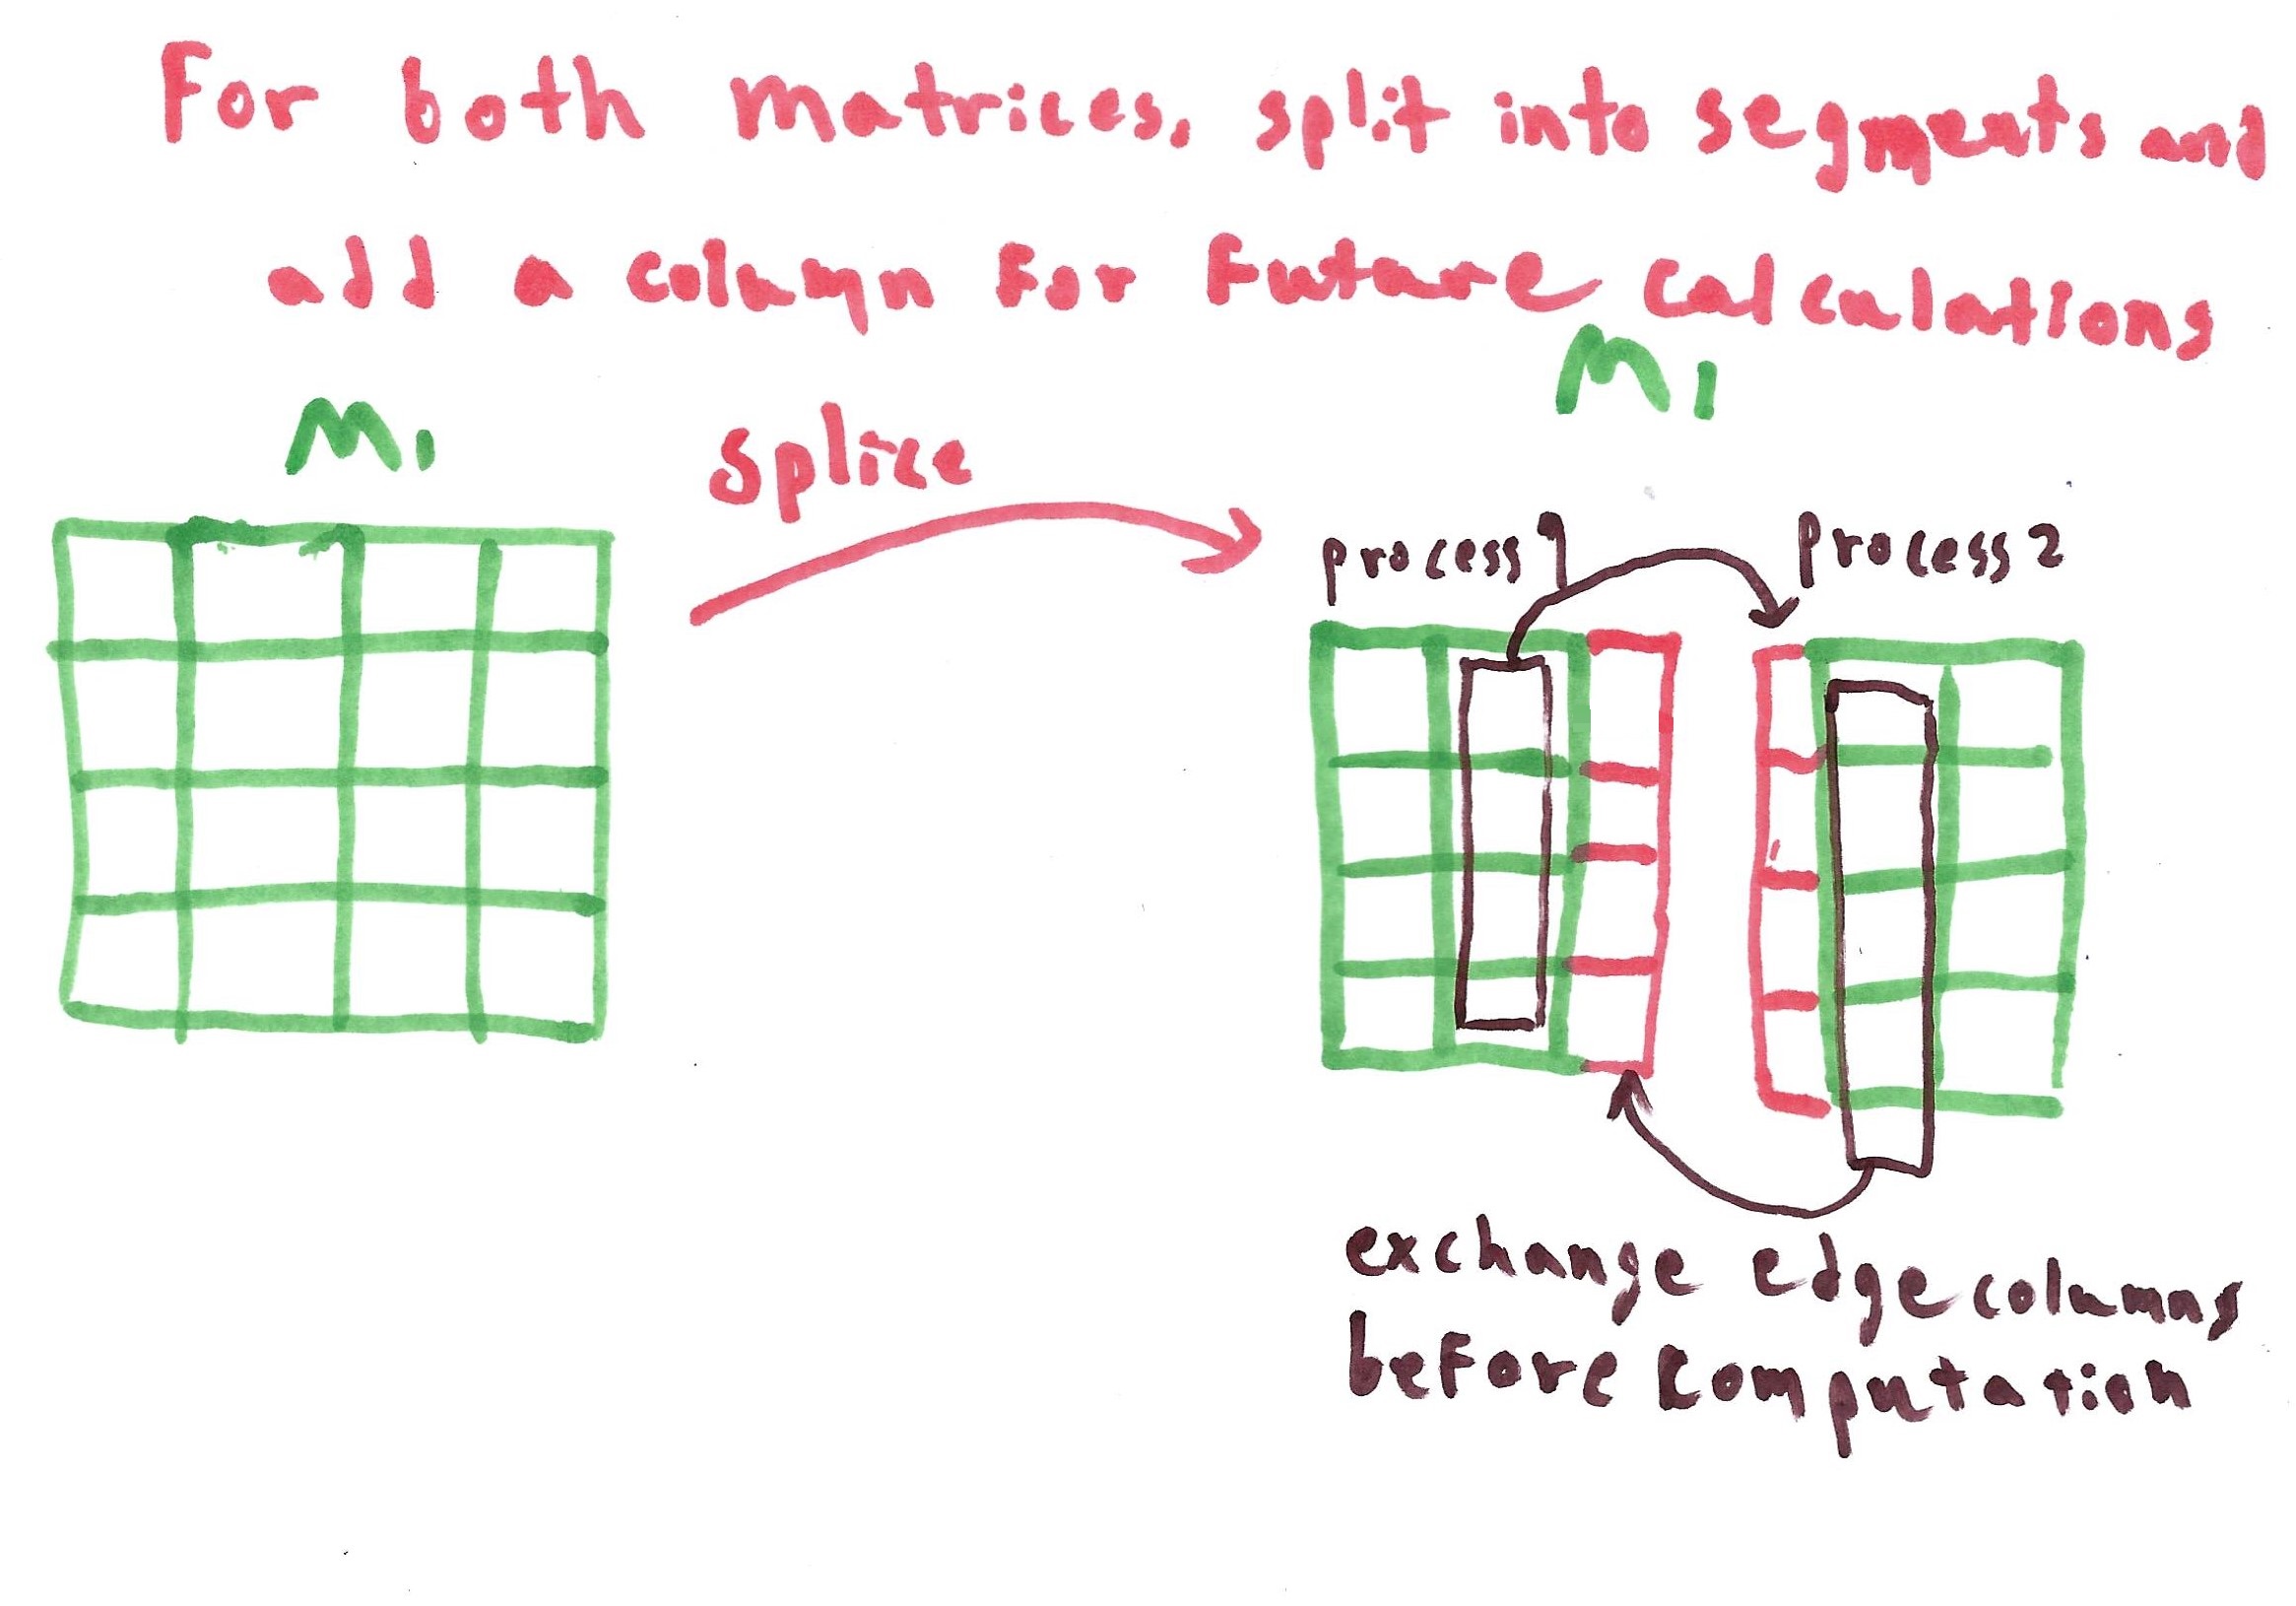 For both matrices, split into segments and
add a column for future calculations
M1
splice
M1
process 1
process 2
exchange edge columns
before computation